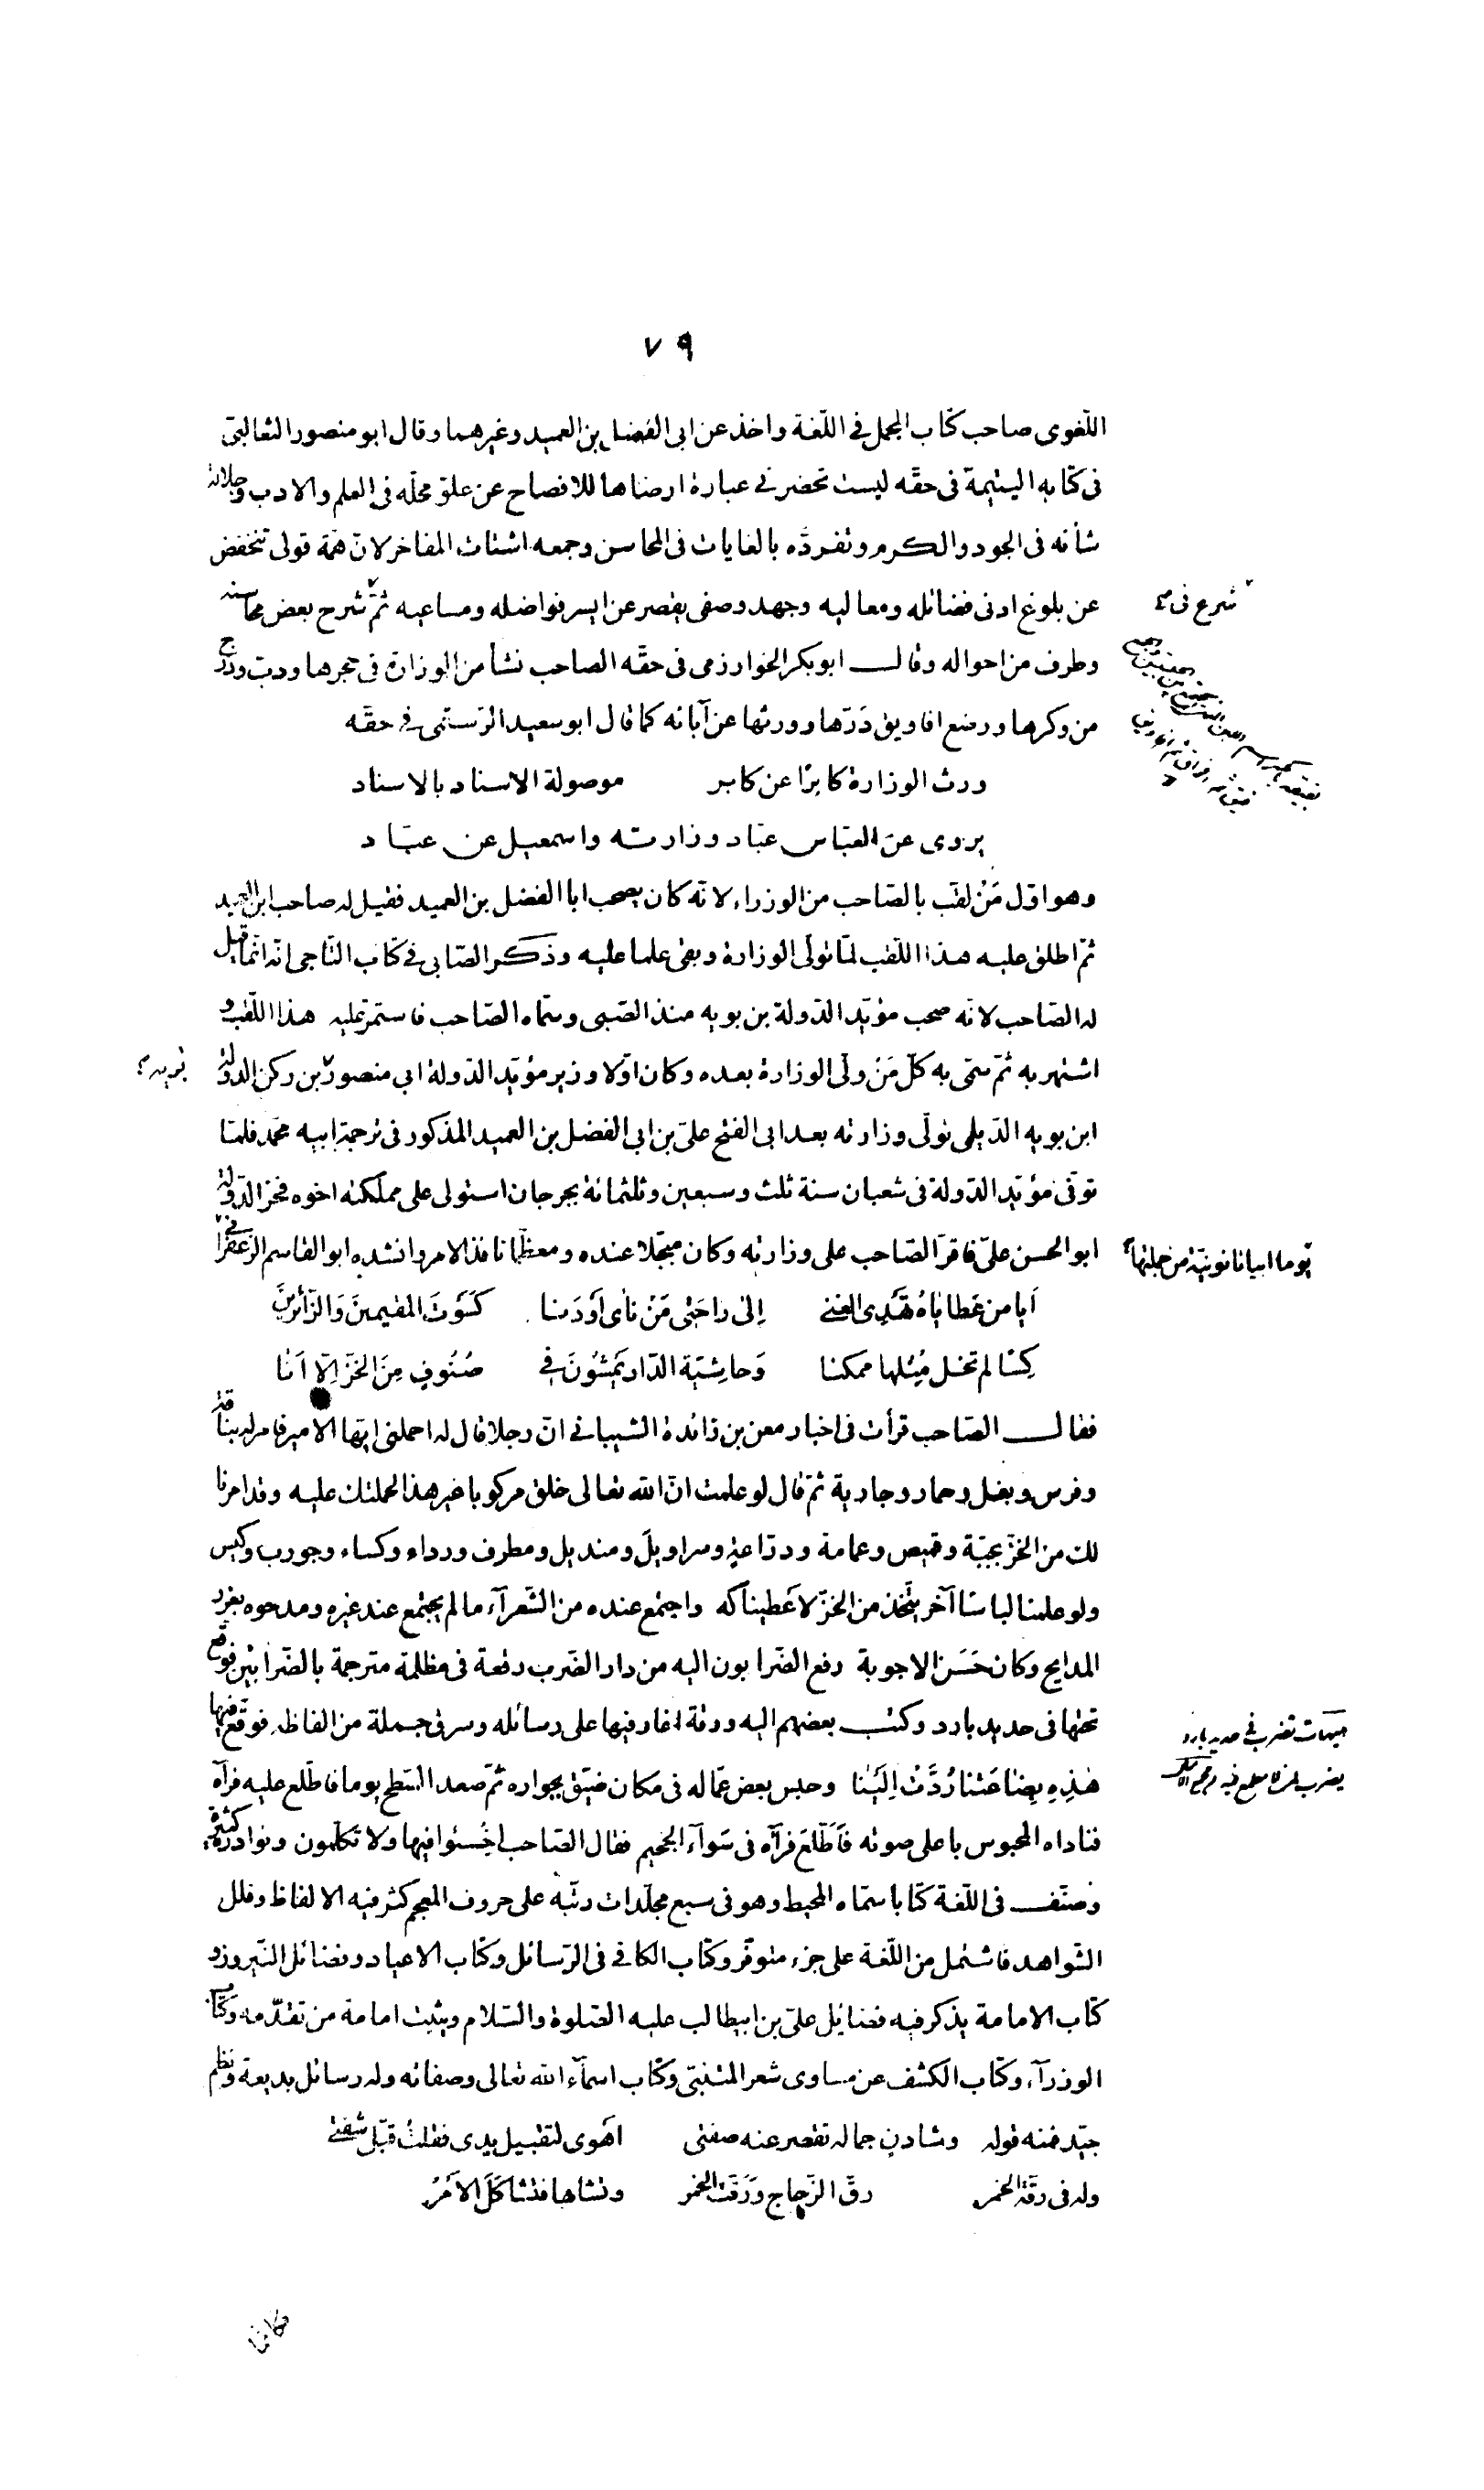 ٧٩
اللّغوى صاحب كتاب المجمل فى اللّغة واخذ عن ابى الفضل بن العميد وغيرهما وقال ابو منصور الثعالبىّ
فى كتابه اليتيمة فى حقّه ليست تحضرنى عبارة ارضاها للافصاح عن علوّ محلّه فى العلم والادب وجلالة
شأنه فى الجود والكرم وتفرّده بالغايات فى المحاسن وجمعه اشتات المفاخر لانّ همّة قولى تنخفض
عن بلوغ ادنى فضائله ومعاليه وجهد وصفى يقصر عن ايسر فواضله ومساعيه ثمّ شرح بعض محاسنه
شرع فى
وطرف من احواله وقال ابو بكر الخوارزمى فى حقّه الصاحب نشأ من الوزارة فى حجرها ودبّ ودرج
من وكرها ورضع افاويق دَرّها وورثها عن آبائه كما قال ابو سعيد الرّستمى فى حقّه
ورث الوزارة كابرًا عن كابر موصولة الاسناد بالاسناد
يروى عن العبّاس عبّاد وزارته واسمعيل عن عبّاد
وهو اوّل مَنْ لقّب بالصّاحب من الوزراء لانّه كان يصحب ابا الفضل بن العميد فقيل له صاحب ابن العميد
ثمّ اطلق عليه هذا اللّقب لمّا تولّى الوزارة وبقى علما عليه وذكر الصّابى فى كتاب التّاجى انّه انّما قيل
له الصّاحب لانّه صحب مؤيّد الدّولة بن بويه منذ الصّبى وسمّاه الصّاحب فاستمرّ عليه هذا اللّقب و
اشتهر به ثمّ سمّى به كلّ مَنْ ولى الوزارة بعده وكان اوّلا وزير مؤيّد الدّولة ابى منصور بن ركن الدّولة
بويه
ابن بويه الدّيلمى تولّى وزارته بعد ابى الفتح علىّ بن ابى الفضل بن العميد المذكور فى ترجمة ابيه محمّد فلمّا
توفّى مؤيّد الدّولة فى شعبان سنة ثلث وسبعين وثلثمائة بجرجان استولى على مملكته اخوه فخر الدّولة
ابو الحسن علىّ فاقرّ الصّاحب على وزارته وكان مبجّلا عنده ومعظّما نافذ الامر وانشده ابو القاسم الزّعفرانى
يوما ابياتا نونيّة من جملتها
اَيا من عَطاياهُ تَهْدِى الغنى اِلى راحَتَى مَنْ نأى اَوْ دَنا كَسَوْتَ المقيمينَ وَالزّائرينَ
كِسًا لم تخل مِثلها ممكنا وَحاشِيَة الدّار يَمْشُونَ فى صُنُوفٍ مِنَ الخَزّ اِلّا اَنا
فقال الصّاحب قرأت فى اخبار معن بن زائدة الشيبانى انّ رجلا قال له احملنى ايّها الامير فامر له بناقة
وفرس وبغل وحمار وجارية ثمّ قال لو علمت انّ الله تعالى خلق مركوبا غير هذا لحملتك عليه وقد امرنا
لك من الخزّ بجبّة وقميص وعمامة ودرّاعة وسراويل ومنديل ومطرف ورداء وكساء وجورب وكيس
ولو علمنا لباسًا آخر يتّخذ من الخزّ لاَعطيناكه واجتمع عنده من الشّعرآء ما لم يجتمع عند غيره ومدحوه بغرر
المدايح وكان حَسَن الاجوبة رفع الضّرابون اليه من دار الضّرب رقعة فى مظلمة مترجمة بالضّرابين فوقّع
تحتها فى حديد بارد وكتب بعضهم اليه ورقة اغار فيها على رسائله وسرق جملة من الفاظه فوقّع فيها
هيهات تضرب فى حديد بارد
هٰذِهِ بِضٰاعَتُنا رُدَّتْ اِلَيْنا وحبس بعض عمّاله فى مكان ضيّق بجواره ثمّ صعد السّطح يوما فاطّلع عليه فرآه
فناداه المحبوس باعلى صوته فَاَطّلَعَ فرآه فى سَوآء الجحيم فقال الصّاحب اخْسَئوا فيها ولا تكلّمون ونوادره كثيرة
وصنّف فى اللّغة كتابا سمّاه المحيط وهو فى سبع مجلّدات رتّبه على حروف المعجم كثر فيه الالفاظ وقلل
الشّواهد فاشتمل من اللّغة على جزء متوفّر وكتاب الكافى فى الرّسائل وكتاب الاعياد وفضائل النّيروز و
كتاب الامامة يذكر فيه فضايل علىّ بن ابيطالب عليه الصّلوة والسّلام ويثبت امامة من تقدّمه وكتاب
الوزرآء وكتاب الكشف عن مساوى شعر المتنبّى وكتاب اسمآء الله تعالى وصفاته وله رسائل بديعة ونظم
جيّد فمنه قوله وشادنٍ جماله تقصر عنه صفتى اهوى لتقبيل يدى فقلتُ قبّل شفتى
وله فى رقّة الخمر رقّ الزّجاج وَرَقّت الخمر وتشابها فتشاكَلَ الاَمْرُ
فكانّما